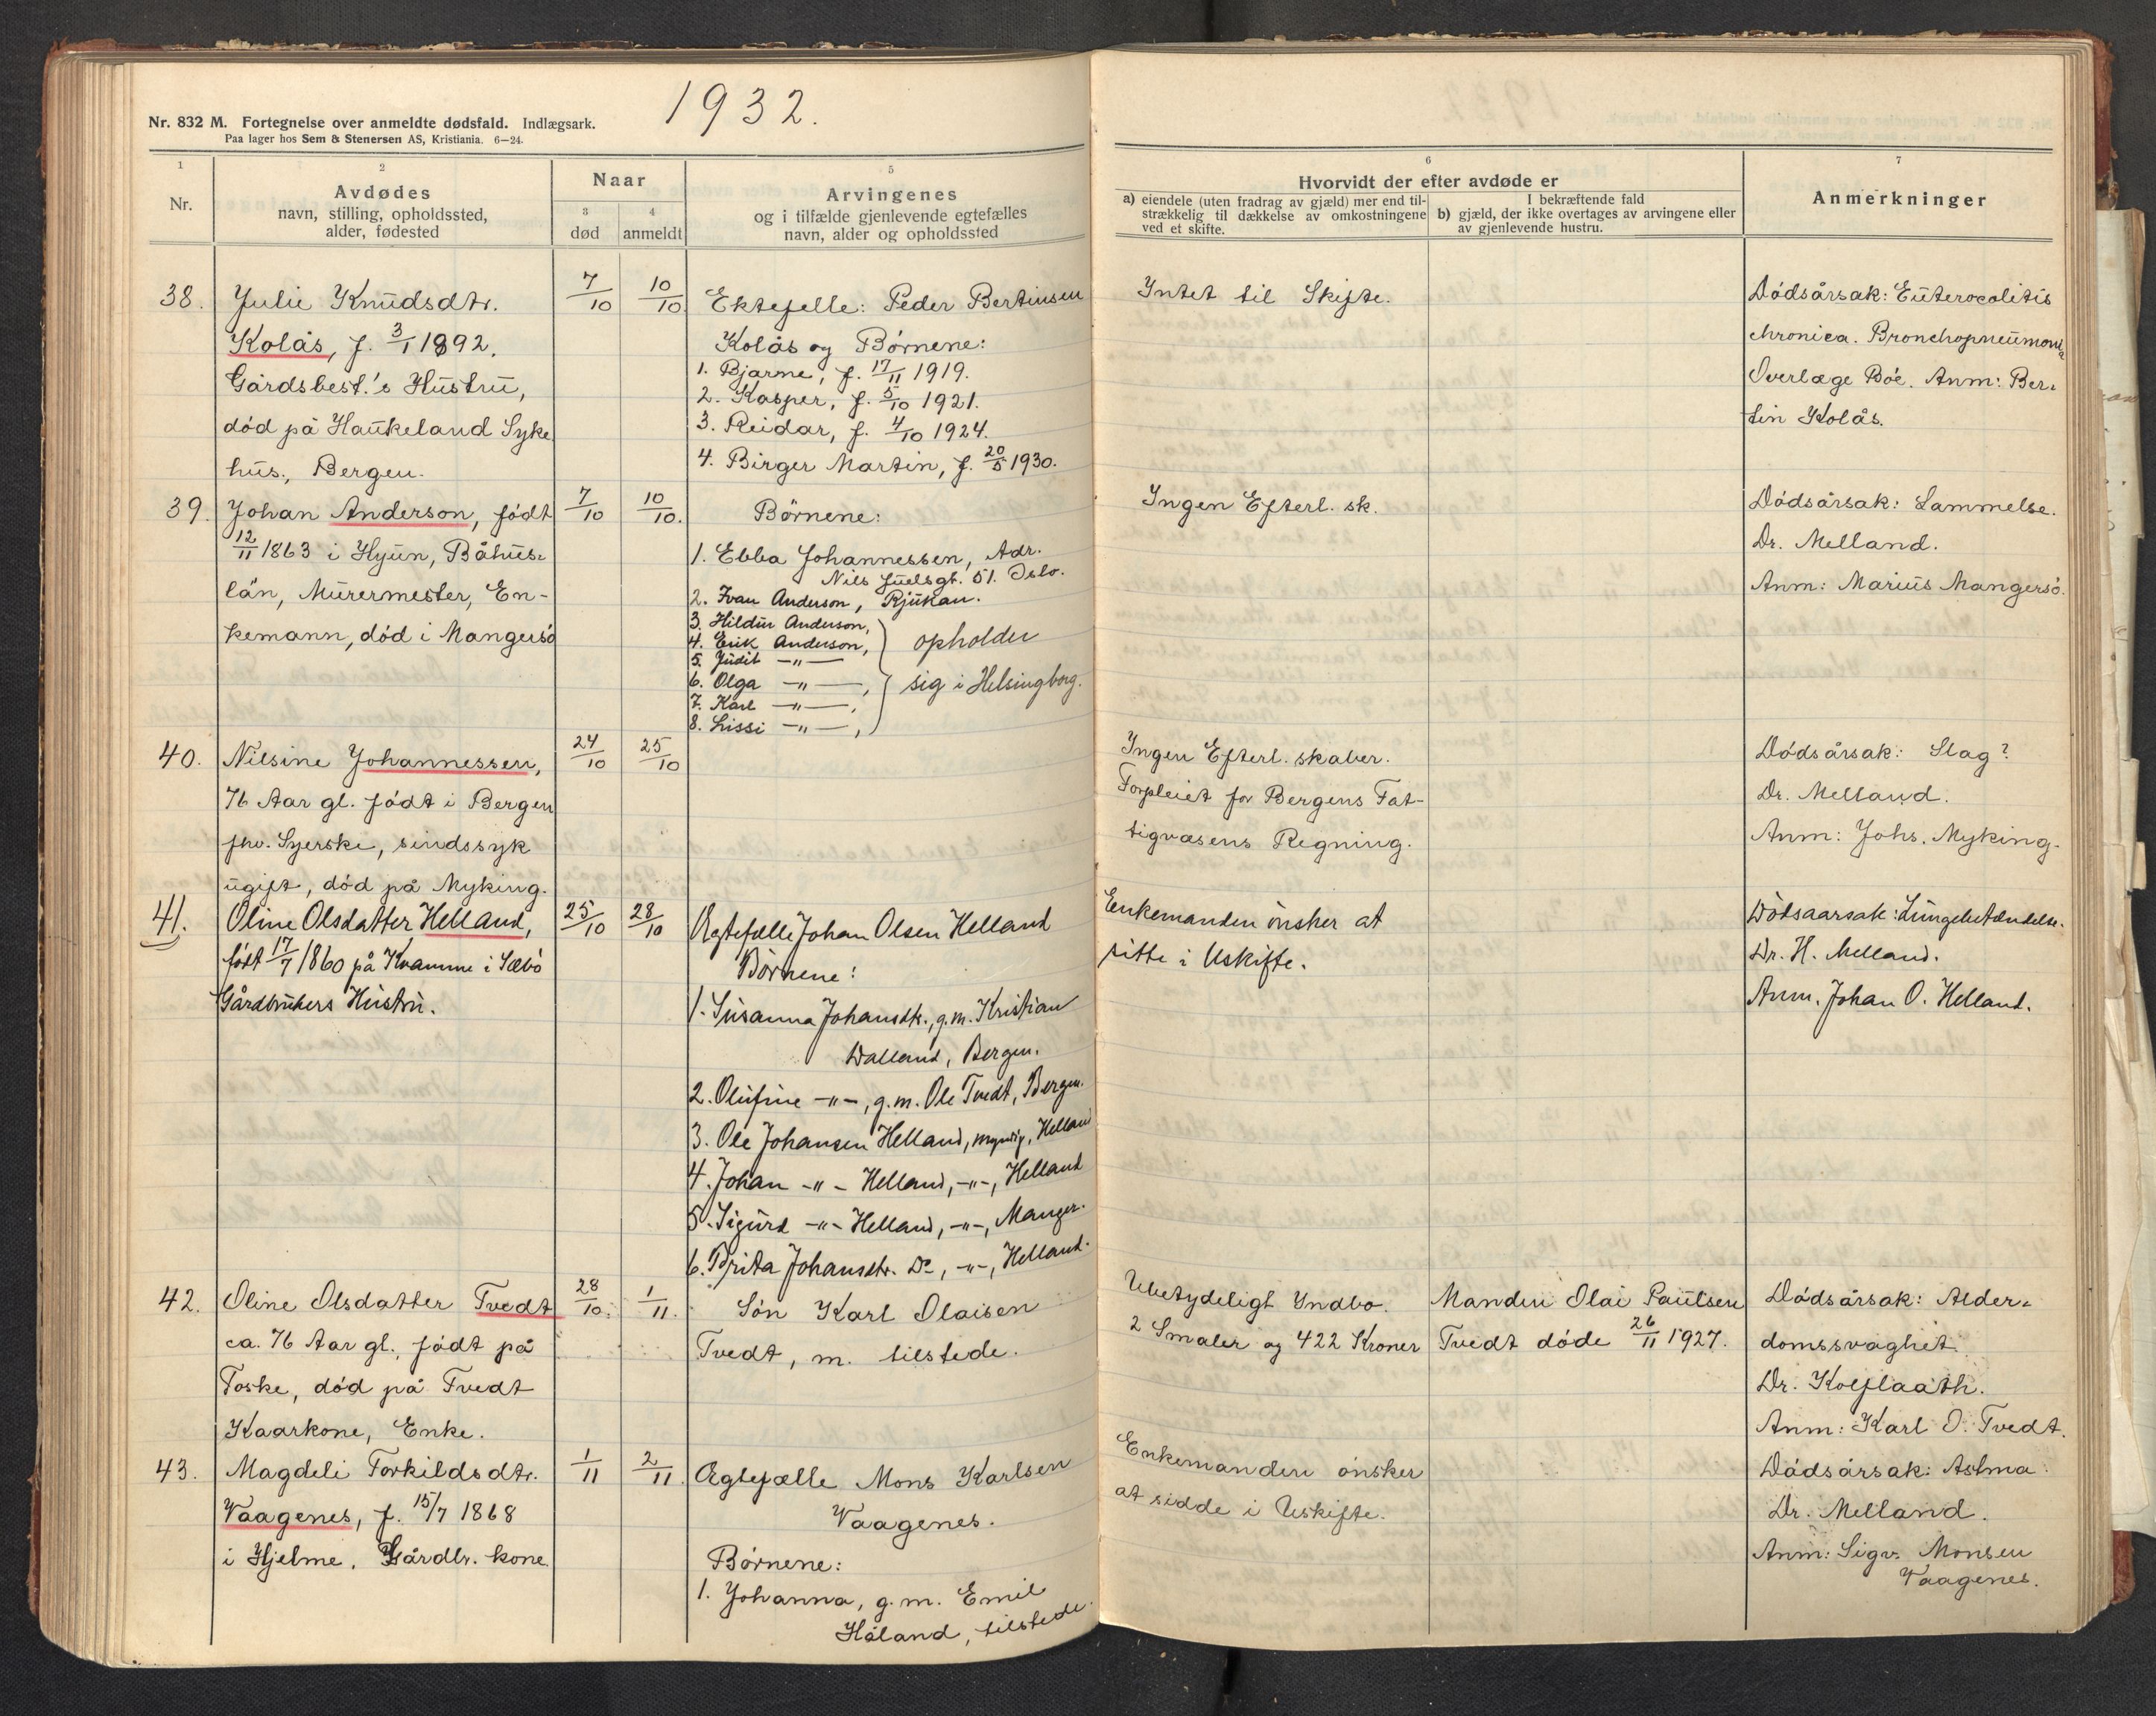 1932.
Nr. 832 M. Fortegnelse over anmeldte dødsfald. Indlægsark.
Paa lager hos Sem & Stenersen AS, Kristiania. 6—24.
1
Nr.
2
Avdødes
navn, stilling, opholdssted,
alder, fødested
Naar
3
død
4
anmeldt
5
Arvingenes
og i tilfælde gjenlevende egtefælles
navn, alder og opholdssted
6
Hvorvidt der efter avdøde er
a) eiendele (uten fradrag av gjæld) mer end til-
strækkelig til dækkelse av omkostningene
ved et skifte.
I bekræftende fald
b) gjæld, der ikke overtages av arvingene eller
av gjenlevende hustru.
7
Anmerkninger
38.
Julie Knudsdtr.
Kolås, f. 3/1 1892.
Gårdsbest.'s Hustru,
død på Haukeland Syke
hus., Bergen.
7/10
10/10
Ektefelle: Peder Bertinsen
Kolås og Børnene:
1. Bjarne, f. 17/11 1919.
2. Kasper, f. 5/10 1921.
3. Reidar, f. 4/10 1924.
4. Birger Martin, f. 20/5 1930.
Intet til Skifte.
Dødsårsak: Enterocolitis
chronica. Bronchopneumonia
Overlæge Bøe. Anm: Ber-
tin Kolås.
39.
Johan Anderson, født
12/11 1863 i Hyun, Båhus-
län, Murermester, En-
kemann, død i Mangersø
7/10
10/10.
Børnene:
1. Ebba Johannessen, Adr.
Nils Juelsgt. 51. Oslo.
2. Ivan Anderson, Rjukan.
3. Hildur Anderson,
4. Erik Anderson,
5. Judit —"—
6. Olga —"—,
7. Karl —"—,
8. Lissi —"—,
opholder
sig i Helsingborg.
Ingen Efterl. sk.
Dødsårsak: Lammelse.
Dr. Melland.
Anm: Marius Mangersø.
40.
Nilsine Johannessen,
76 Aar gl. født i Bergen
fhv. Syerske, sindssyk
ugift, død på Myking.
24/10
25/10
Ingen Efterl. skaber.
Forpleiet for Bergens Fat-
tigvæsens Regning.
Dødsårsak: Slag?
Dr. Melland.
Anm: Johs. Myking.
41.
Oline Olsdatter Helland,
født 17/7 1860 på Kvamme i Sæbø
Gårdbrukers Hustru.
25/10
28/10
Ægtefælle Johan Olsen Helland
Børnene:
1. Susanna Johansdtr., g.m. Kristian
Dalland, Bergen.
2. Olufine -"-, g.m. Ole Tvedt, Bergen.
3. Ole Johansen Helland, myndig, Helland
4. Johan -"- Helland, -"-, Helland
5. Sigurd -"- Helland, -"-, Manger.
6. Brita Johansdtr. Do, -"-, Helland.
Enkemanden ønsker at
sitte i Uskifte.
Dødsaarsak: Lungebetændelse.
Dr. H. Melland.
Anm. Johan O. Helland.
42.
Oline Olsdatter Tvedt
ca. 76 Aar gl., født på
Toske, død på Tvedt
Kaarkone, Enke.
28/10.
1/11.
Søn Karl Olaisen
Tvedt, m. tilstede.
Ubetydeligt Indbo.
2 Smaler og 422 Kroner
Manden Olai Paulsen
Tvedt døde 26/11 1927.
Dødsårsak: Alder-
domssvaghet.
Dr. Koeflaath.
Anm: Karl O. Tvedt.
43.
Magdeli Torkildsdtr.
Vaagenes, f. 15/7 1868
i Hjelme. Gårdbr. kone.
1/11
2/11.
Ægtefælle Mons Karlsen
Vaagenes.
Børnene:
1. Johanna, g.m. Emil
Håland, tilstede.
Enkemanden ønsker
at sidde i Uskifte.
Dødsårsak: Astma.
Dr. Melland.
Anm: Sigv. Monsen
Vaagenes.